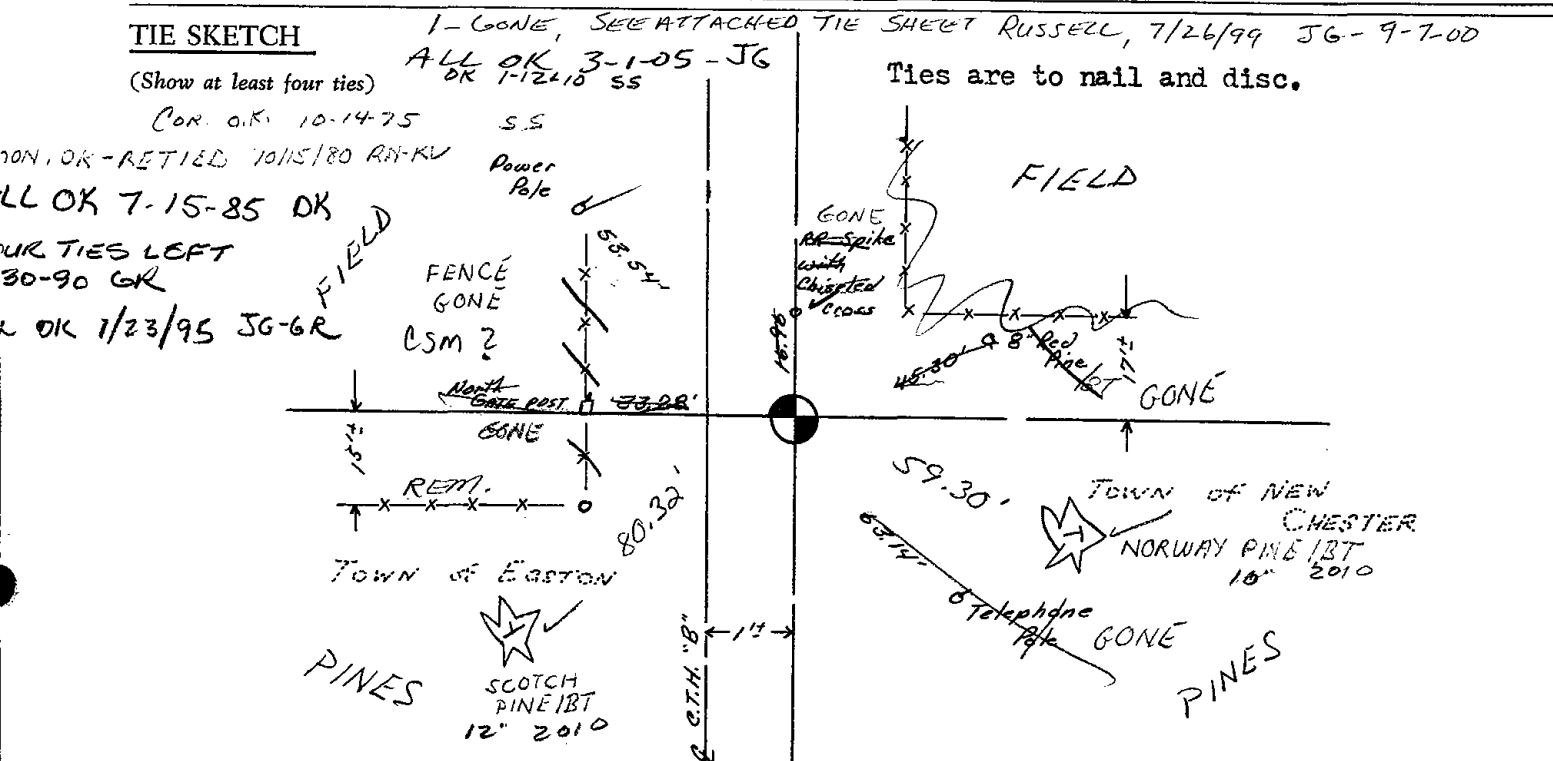 TIE SKETCH
(Show at least four ties)
1-GONE, SEE ATTACHED TIE SHEET RUSSELL, 7/26/99 JG-9-7-00
ALL OK 3-1-05-JG
OK 1-12-10 SS
Ties are to nail and disc.
COR. O.K. 10-14-75 S.S
MON. OK-RETIED 10/15/80 RN-KV
LL OK 7-15-85 DK
OUR TIES LEFT
30-90 GR
OK 1/23/95 JG-GR
FIELD
Power
Pole
53.54'
FENCE
GONE
CSM ?
North
GATE POST
33.28'
GONE
15'±
REM.
80.32'
TOWN OF EASTON
PINES
SCOTCH
PINE/BT
12" 2010
GONE
RR Spike
with
Chiseled
Cross
FIELD
45.30'
8" Red
Pine
/BT
17'±
GONE
59.30'
TOWN OF NEW
CHESTER
NORWAY PINE/BT
10" 2010
63.14'
Telephone
Pole
GONE
PINES
1'±
C.T.H. "B"